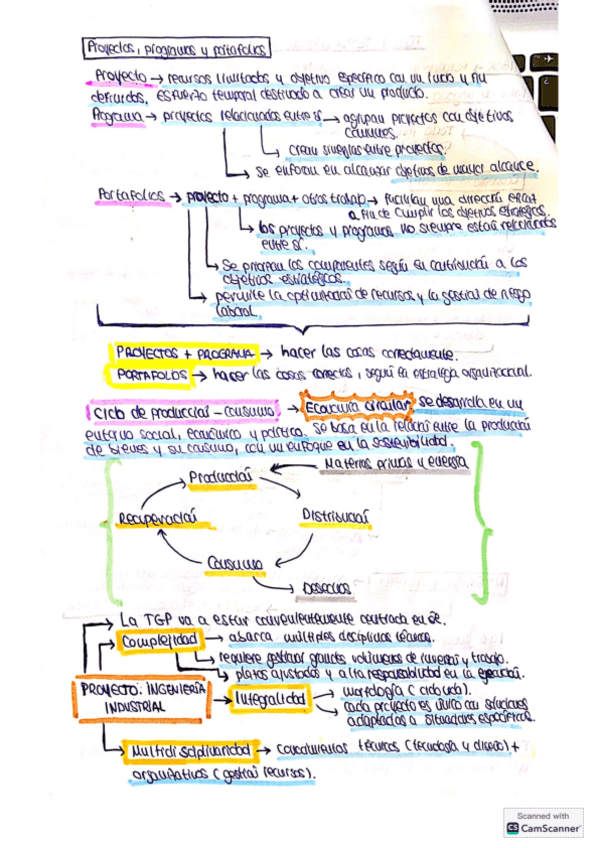 Proyectos, programas y portafolios
Proyecto → recursos limitados y objetivo específico con un inicio y fin
definidos, esfuerzo temporal destinado a crear un producto.
Programa → proyectos relacionados entre sí → agrupan proyectos con objetivos
comunes.
crean sinergias entre proyectos.
se enfocan en alcanzar objetivos de mayor alcance.
Portafolios → proyecto + programa + otros trabajo → facilitan una dirección
a fin de cumplir los objetivos estratégicos.
los proyectos y programas no siempre están relacionados
entre sí.
Se priorizan los componentes según su contribución a los
objetivos estratégicos.
permite la optimización de recursos y la gestión de riesgo
laboral.
PROYECTOS + PROGRAMA → hacer las cosas correctamente.
PORTAFOLIOS → hacer las cosas correctas, según la estrategia organizacional.
Ciclo de producción - consumo → Economía circular, se desarrolla en un
entorno social, económico y político. Se basa en la relación entre la producción
de bienes y su consumo, con un enfoque en la sostenibilidad.
Materias primas y energía
Producción
Recuperación Distribución
Consumo
Desechos
La TGP va a estar convenientemente centrada en
Complejidad → abarca múltiples disciplinas técnicas.
requiere gestionar grandes volúmenes de inversión y trabajo.
plazos ajustados y alta responsabilidad en la ejecución.
PROYECTO: INGENIERÍA
INDUSTRIAL
Integralidad → morfología (ciclo vida).
cada proyecto es único con soluciones
adaptadas a situaciones específicas.
Multidisciplinariedad → conocimientos técnicos (tecnología y diseño) +
organizativos (gestionar recursos).
Scanned with
CS CamScanner